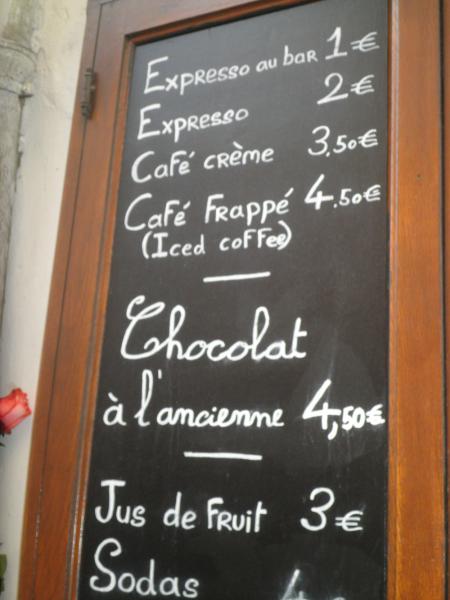 Expresso au bar 1€
Expresso 2€
Café crème 3,50€
Café Frappé 4.50€
(Iced coffee)
Chocolat
à l'ancienne 4,50€
Jus de Fruit 3€
Sodas